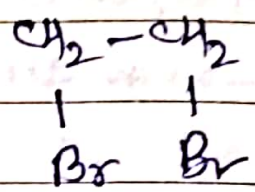 CH2-CH2
| |
Br Br